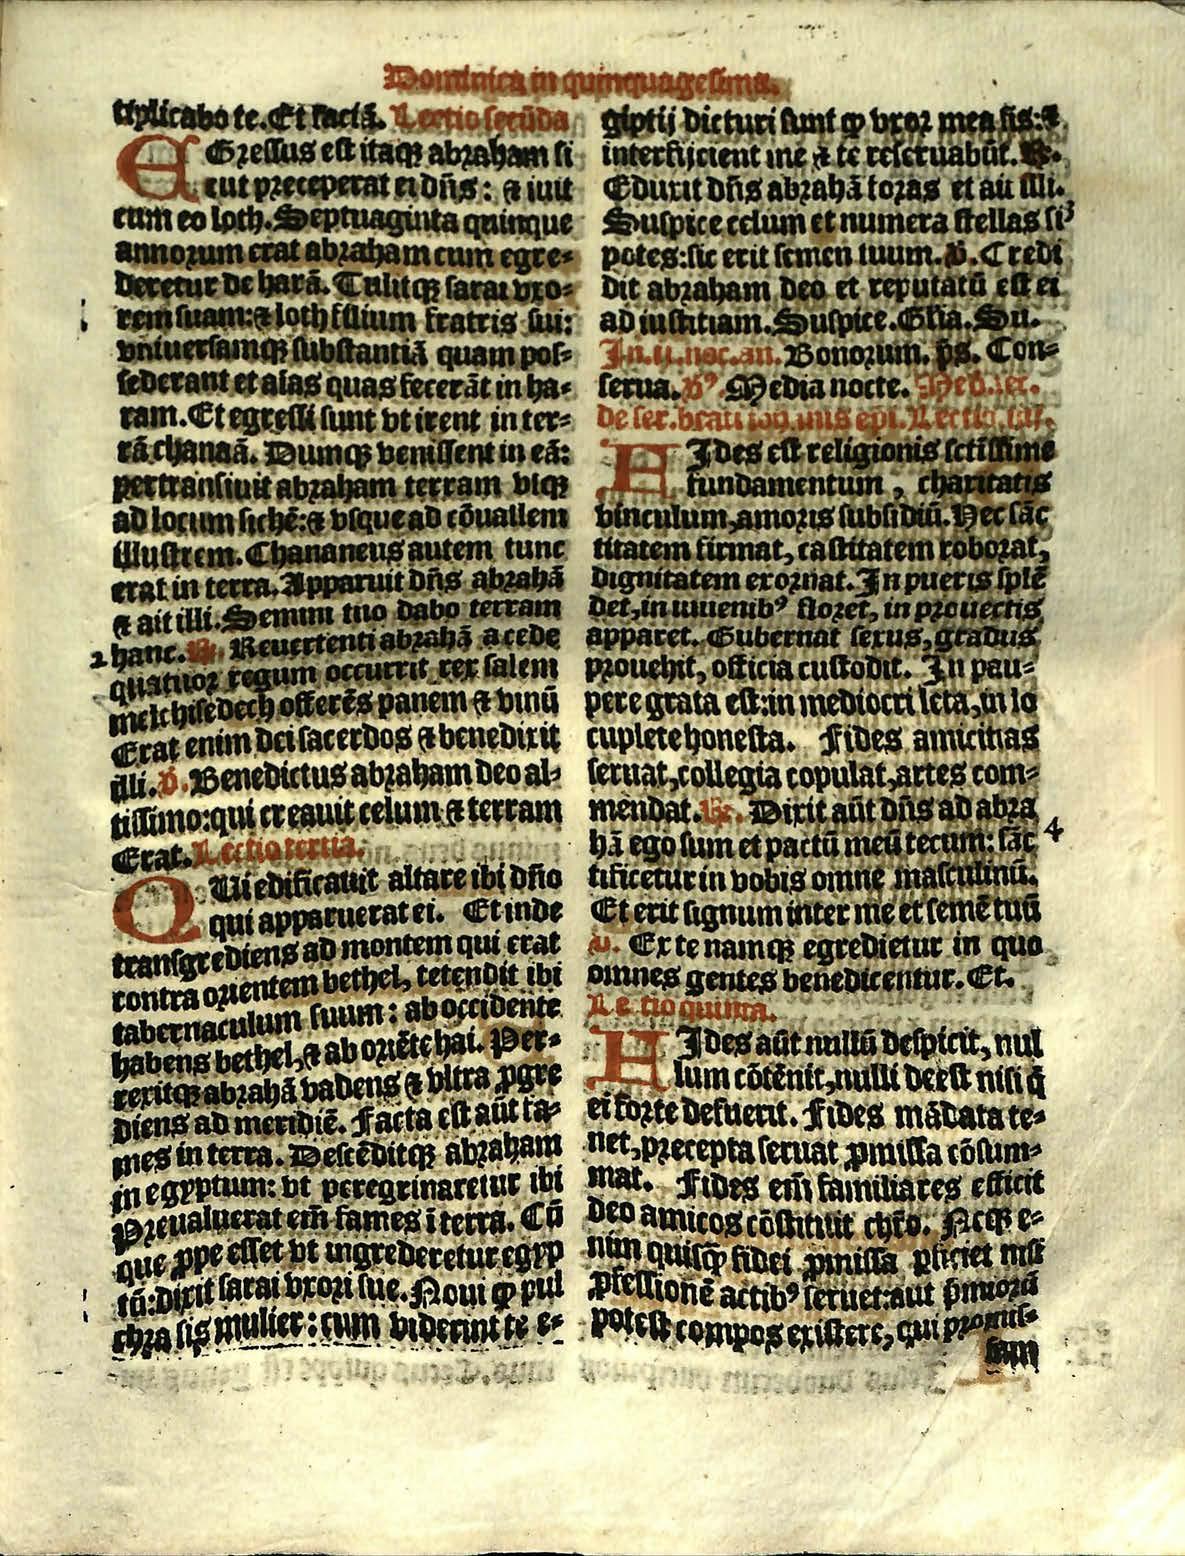 Dominica in quinquagesima.
tiplicabo te. Et faciā. Lectio secūda
EGressus est itaqꝫ abraham si
cut preceperat ei dn̄s: ⁊ iuit
cum eo loth. Septuaginta quinque
annorum erat abraham cum egre⸗
deretur de harā. Tulitqꝫ sarai vxo⸗
rem suam:⁊ loth filium fratris sui:
vniuersamqꝫ substantiā quam pos⸗
sederant et aīas quas fecerāt in ha⸗
ram. Et egressi sunt vt irent in ter⸗
rā chanaā. Dumqꝫ venissent in eā:
pertransiuit abraham terram vsqꝫ
ad locum sichē:⁊ vsque ad cōuallem
illustrem. Chananeus autem tunc
erat in terra. Apparuit dn̄s abrahā
⁊ ait illi. Semini tuo dabo terram
2 hanc. ℟. Reuertenti abrahā a cede
quatuor regum occurrit rex salem
melchisedech offerēs panem ⁊ vinū
Erat enim dei sacerdos ⁊ benedixit
illi. ℣. Benedictus abraham deo al⸗
tissimo:qui creauit celum ⁊ terram
Erat. Lectio tertia.
QUi edificauit altare ibi dn̄o
qui apparuerat ei. Et inde
transgrediens ad montem qui erat
contra orientem bethel, tetendit ibi
tabernaculum suum: ab occidente
habens bethel,⁊ ab oriēte hai. Per⸗
rexitqꝫ abrahā vadens ⁊ vltra ꝓgre
diens ad meridiē. Facta est aūt fa⸗
mes in terra. Descēditqꝫ abraham
in egyptum: vt peregrinaretur ibi
Preualuerat em̄ fames ī terra. Cū
que ꝓpe esset vt ingrederetur egyp
tū:dixit sarai vxori sue. Noui ꝙ pul
chra sis mulier: cum viderint te e⸗
giptij dicturi sunt ꝙ vxor mea sis:⁊
interficient me ⁊ te reseruabūt. ℟.
Eduxit dn̄s abrahā foras et ait illi.
Suspice celum et numera stellas si 3
potes:sic erit semen tuum. ℣. Credi
dit abraham deo et reputatū est ei
ad iustitiam. Suspice. Gl̄ia. Su.
In.ij.noc.an. Bonorum. p̄s. Con⸗
serua. ℣ꝰ. Media nocte.
de ser. beati ioānnis epi. Lectio.iiij.
FIdes est religionis sctīssime
fundamentum, charitatis
vinculum,amoris subsidiū. Hec sāc
titatem firmat, castitatem roborat,
dignitatem exornat. In pueris splē
det,in iuuenibꝰ floret, in prouectis
apparet. Gubernat sexus, gradus
prouehit, officia custodit. In pau⸗
pere grata est:in mediocri leta,in lo
cuplete honesta. Fides amicitias
seruat,collegia copulat,artes com⸗
mendat. ℟. Dixit aūt dn̄s ad abra
hā ego sum et pactū meū tecum: sāc 4
tificetur in vobis omne masculinū.
Et erit signum inter me et semē tuū
℣. Ex te namqꝫ egredietur in quo
omnes gentes benedicentur. Et.
Lectio quinta.
FIdes aūt nullū despicit, nul
lum cōtēnit,nulli deest nisi q̄
ei forte defuerit. Fides mādata te⸗
net,precepta seruat ꝓmissa cōsum⸗
mat. Fides em̄ familiares efficit
deo amicos cōstituit chr̄o. Neqꝫ e⸗
nim quisꝙ̄ fidei ꝓmissa ꝑficiet nisi
ꝓfessionē actibꝰ seruet:aut p̄miorū
potest compos existere, qui promis⸗
sam